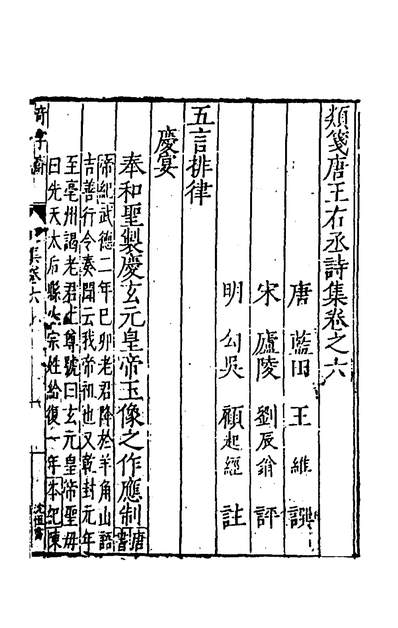 類箋唐王右丞詩集卷之六
唐 藍田 王維 譔
宋 廬陵 劉辰翁 評
明 勾吳 顧起經 註
五言排律
慶宴
奉和聖製慶玄元皇帝玉像之作應制 唐書
帝紀武德二年巳卯老君降於羊角山語
吉善行令奏聞云我帝祖也又乾封元年
至亳州謁老君上尊號曰玄元皇帝聖毋
曰先天太后縣人宗姓給復一年本紀陳